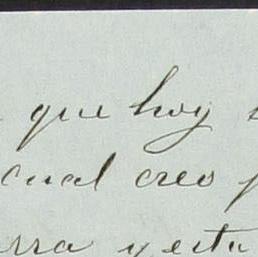 que hoy
cual creo p
rra y esta